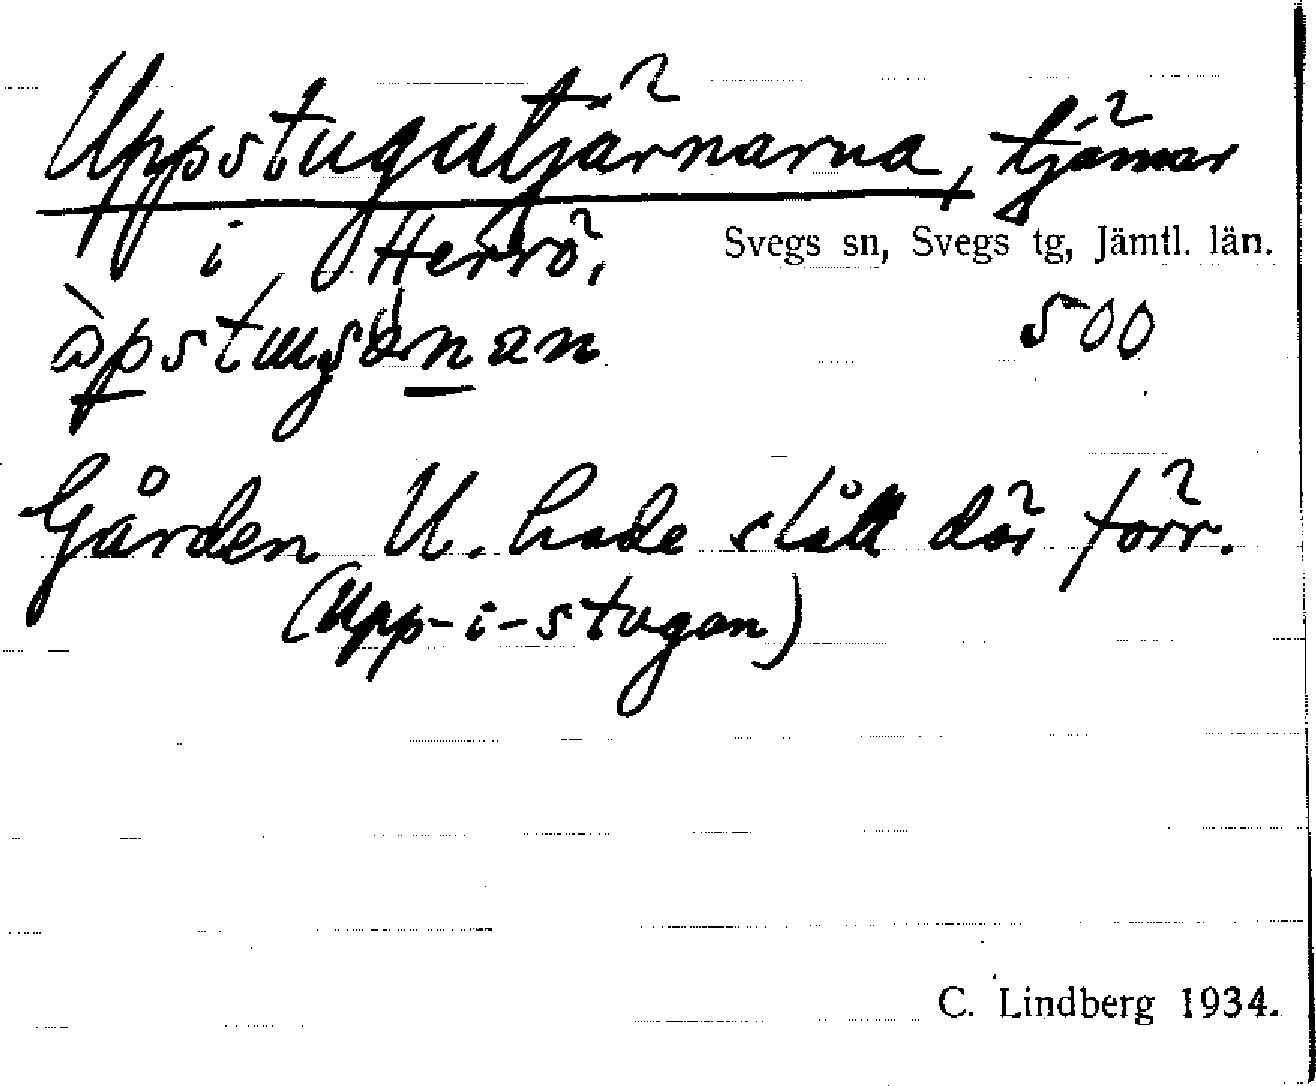 Uppstugutjärnarna, tjärnar
i Herrö,
Svegs sn, Svegs tg, Jämtl. län.
500
Gården U. hade slått där förr.
(Upp-i-stugan)
C. Lindberg 1934.